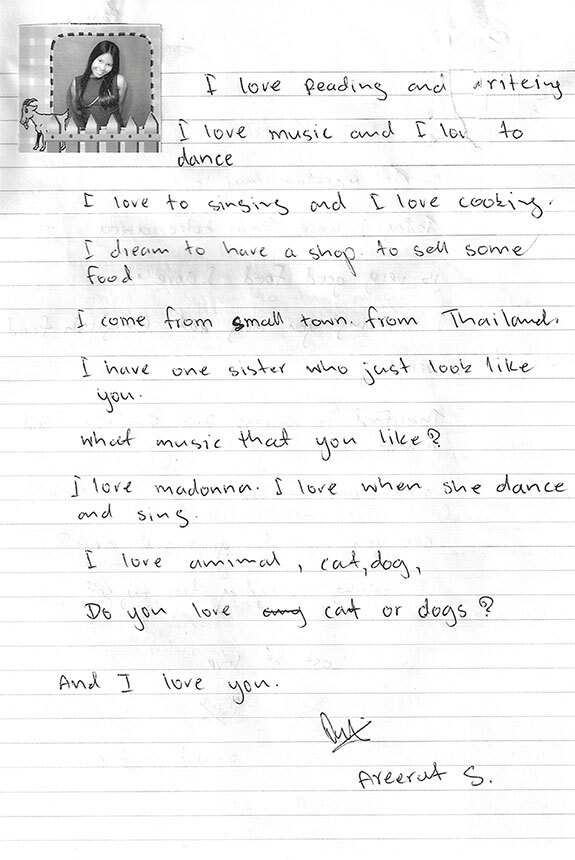 I love Reading and writeing
I love music and I love to
dance
I love to singing and I love cooking.
I dream to have a shop. to sell some
food
I come from small town. from Thailand.
I have one sister who just look like
you.
what music that you like?
I love madonna. I love when she dance
and sing.
I love amimal, cat, dog,
Do you love cat or dogs?
And I love you.
Areerut S.